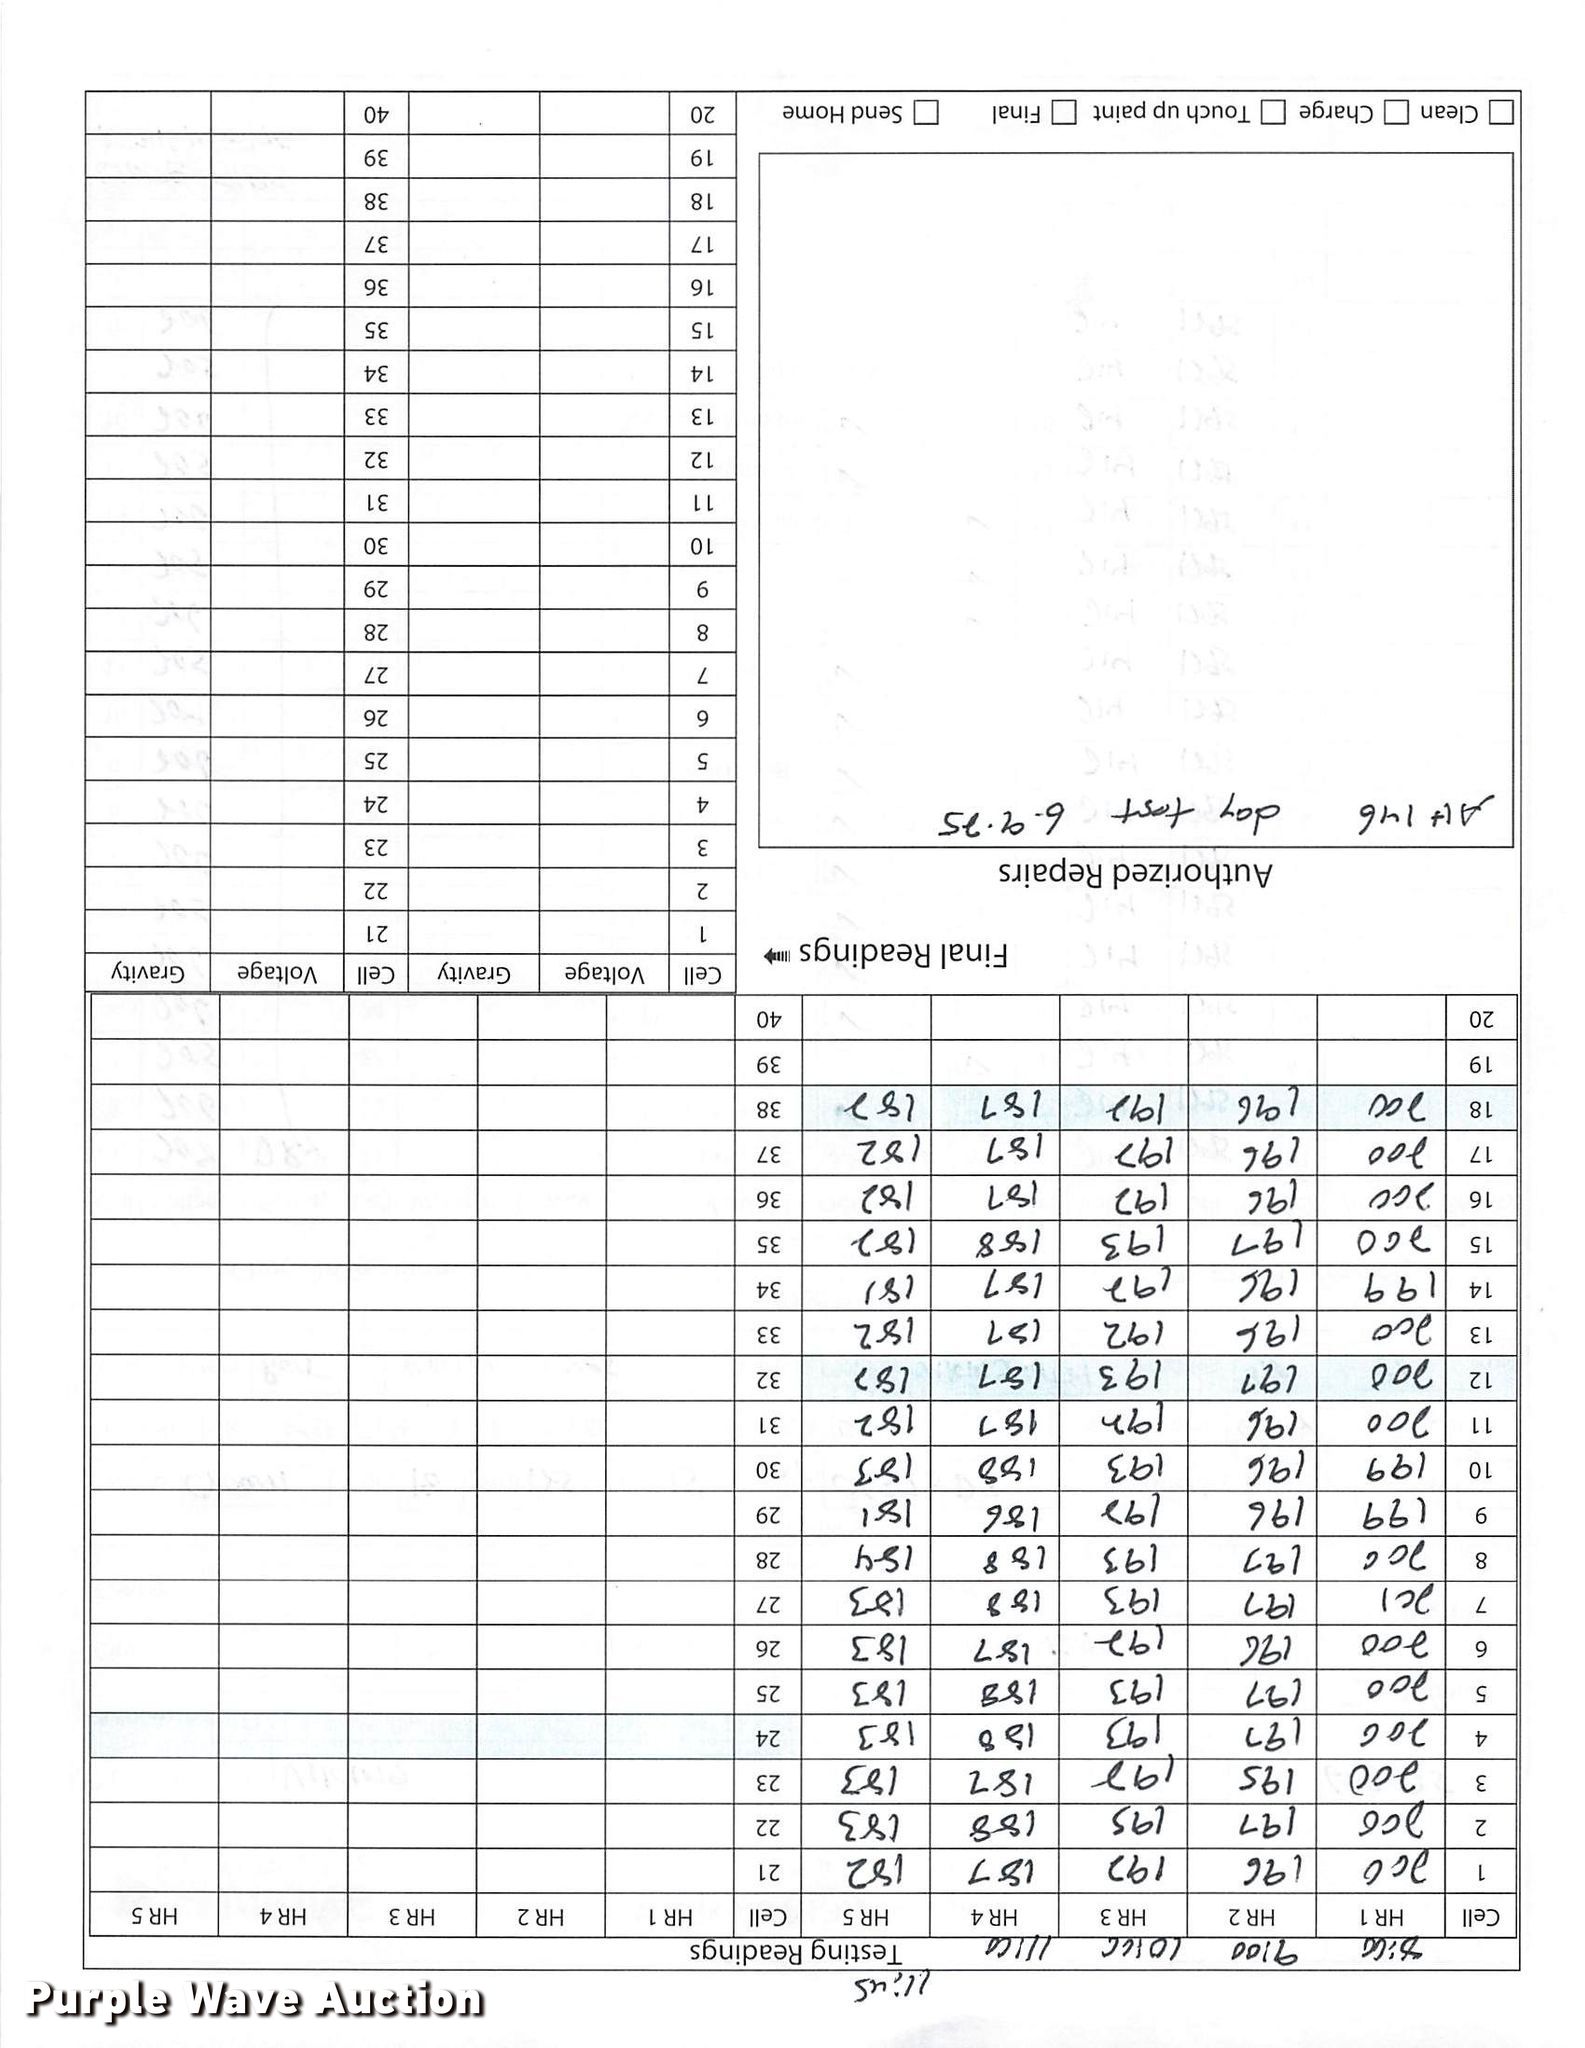 11:45
8:00 9:00 10:00 11:00 Testing Readings
Cell HR 1 HR 2 HR 3 HR 4 HR 5 Cell HR 1 HR 2 HR 3 HR 4 HR 5
1 200 196 192 187 182 21
2 200 197 195 188 183 22
3 200 195 192 187 183 23
4 200 197 193 188 183 24
5 200 197 193 188 183 25
6 200 196 192 187 183 26
7 201 197 193 188 183 27
8 200 197 193 188 184 28
9 199 196 192 186 181 29
10 199 196 193 188 183 30
11 200 196 192 187 182 31
12 200 197 193 187 182 32
13 200 196 192 187 182 33
14 199 196 192 187 181 34
15 200 197 193 188 182 35
16 200 196 192 187 182 36
17 200 196 192 187 182 37
18 200 196 192 187 182 38
19 39
20 40
Final Readings
Authorized Repairs
AH 146 day test
Clean Charge Touch up paint Final Send Home
Cell Voltage Gravity Cell Voltage Gravity
1 21
2 22
3 23
4 24
5 25
6 26
7 27
8 28
9 29
10 30
11 31
12 32
13 33
14 34
15 35
16 36
17 37
18 38
19 39
20 40
Purple Wave Auction